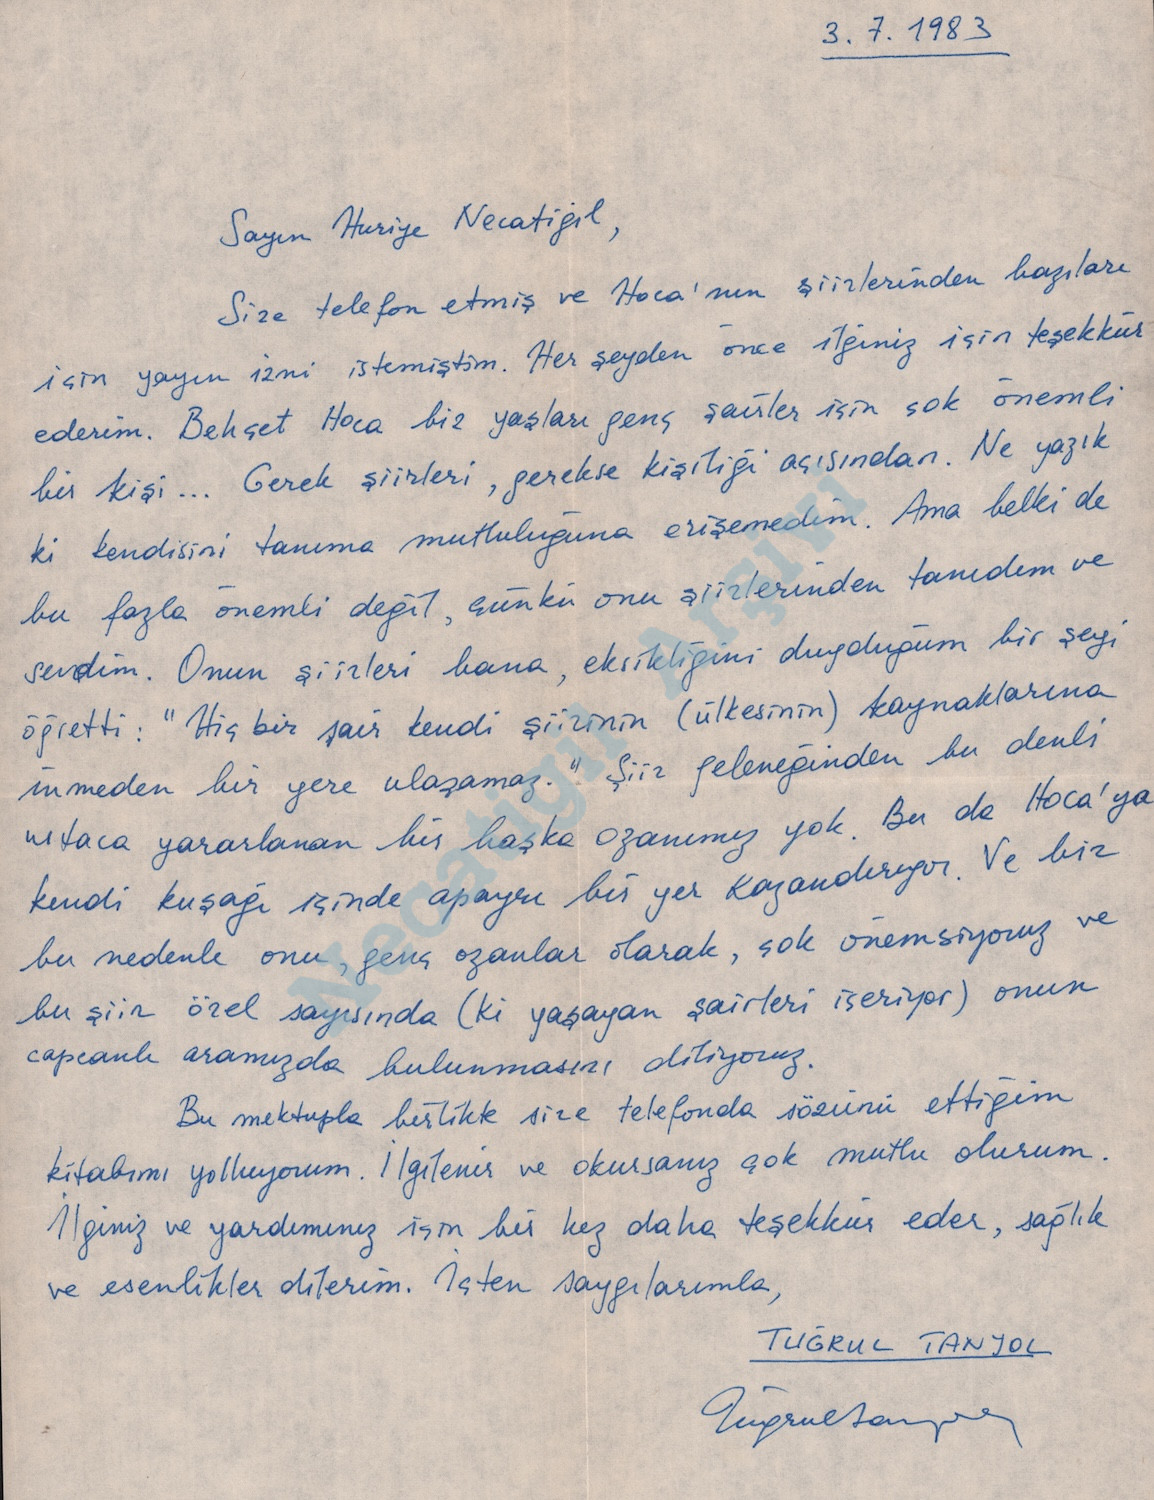 3.7.1983
Sayın Huriye Necatigil,
Size telefon etmiş ve Hoca'nın şiirlerinden bazıları
için yayın izni istemiştim. Her şeyden önce ilginiz için teşekkür
ederim. Behçet Hoca biz yaşları genç şairler için çok önemli
bir kişi... Gerek şiirleri, gerekse kişiliği açısından. Ne yazık
ki kendisini tanıma mutluluğuna erişemedim. Ama belki de
bu fazla önemli değil, çünkü onu şiirlerinden tanıdım ve
sevdim. Onun şiirleri bana, eksikliğini duyduğum bir şeyi
öğretti: "Hiç bir şair kendi şiirinin (ülkesinin) kaynaklarına
inmeden bir yere ulaşamaz." Şiir geleneğinden bu denli
ustaca yararlanan bir başka ozanımız yok. Bu da Hoca'ya
kendi kuşağı içinde apayrı bir yer kazandırıyor. Ve biz
bu nedenle onu, genç ozanlar olarak, çok önemsiyoruz ve
bu şiir özel sayısında (ki yaşayan şairleri içeriyor) onun
capcanlı aramızda bulunmasını diliyoruz.
Bu mektupla birlikte size telefonda sözünü ettiğim
kitabımı yolluyorum. İlgilenir ve okursanız çok mutlu olurum.
İlginiz ve yardımınız için bir kez daha teşekkür eder, sağlık
ve esenlikler dilerim. İçten saygılarımla,
TUĞRUL TANYOL
Tuğrul Tanyol
Necatigil Arşivi